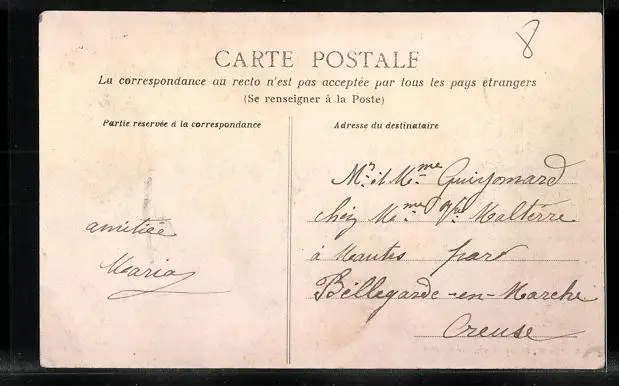 8
CARTE POSTALE
La correspondance au recto n'est pas acceptée par tous les pays étrangers
(Se renseigner à la Poste)
Partie réservée à la correspondance
amitiée
Maria
Adresse du destinataire
Mr et Mme Guiyomard
chéz Mme Vve Malterre
à Mautes par
Bellegarde-en-Marche
Creuse